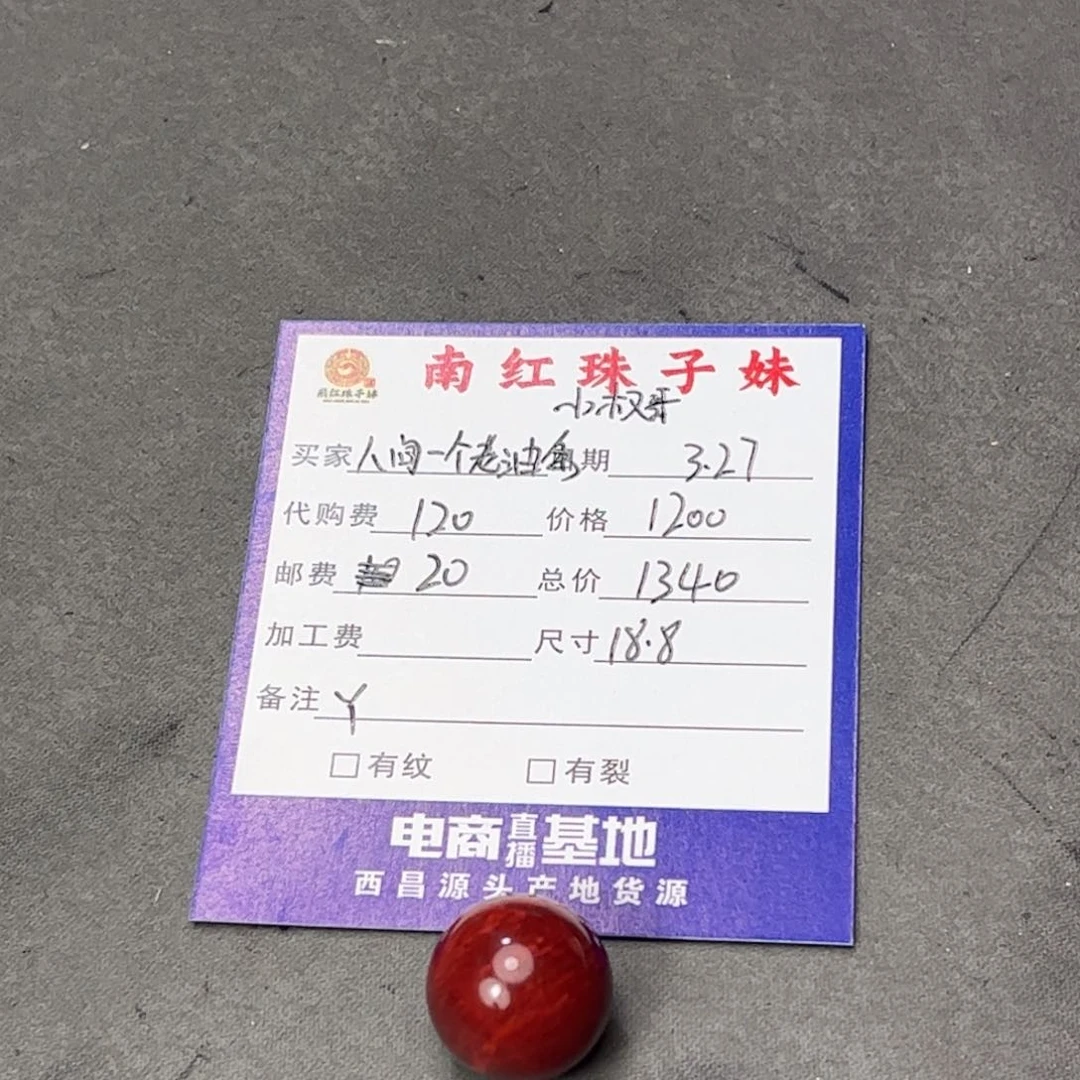 南红珠子妹
南红珠子妹
小权哥
买家 人间一个老油条 日期 3.27
代购费 120 价格 1200
邮费 20 总价 1340
加工费 尺寸 18.8
备注 Y
□有纹 □有裂
电商直播基地
西昌源头产地货源